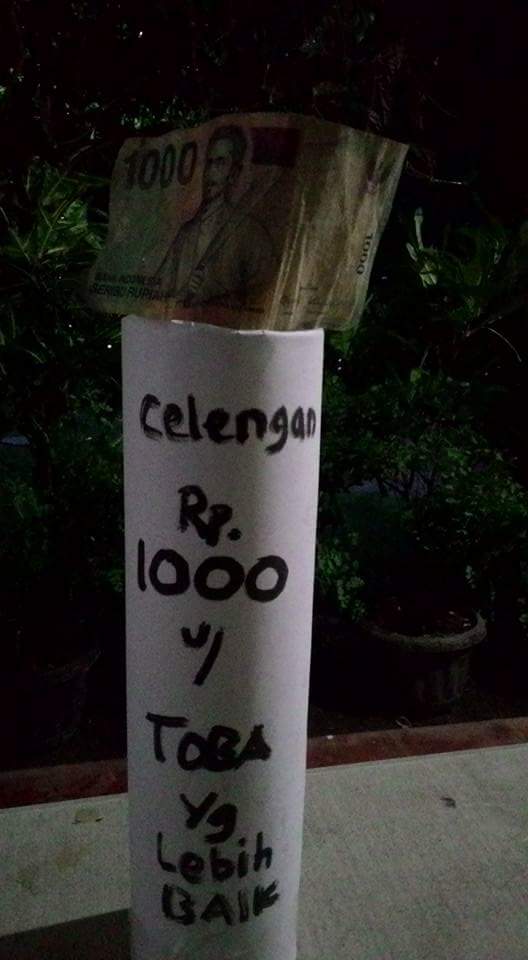 1000
BANK INDONESIA
SERIBU RUPIAH
1000
Celengan
Rp.
1000
u/
TOBA
Yg
Lebih
BAIK